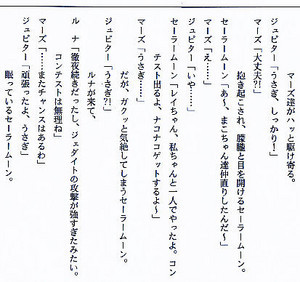 マーズ達がウサギに駆け寄る。
ジュピター「うさぎ、しっかり！」
マーズ「大丈夫?!」
抱き起こされ、朦朧と目を開けるセーラームーン。
セーラームーン「あ〜、まこちゃん達仲直りしたんだ〜」
マーズ「え……」
ジュピター「いや……」
セーラームーン「レイちゃん、私ちゃんと一人でやったよ。コン
テスト出るよ、ナコナコゲットするよ〜」
マーズ「うさぎ……」
だが、ガクッと気絶してしまうセーラームーン。
ジュピター「うさぎ?!」
ルナが来て、
ルナ「徹夜続きだったし、ジェダイトの攻撃が強すぎたみたい。
コンテストは無理ね」
マーズ「……またチャンスはあるわ」
ジュピター「頑張ったよ、うさぎ」
眠っているセーラームーン。